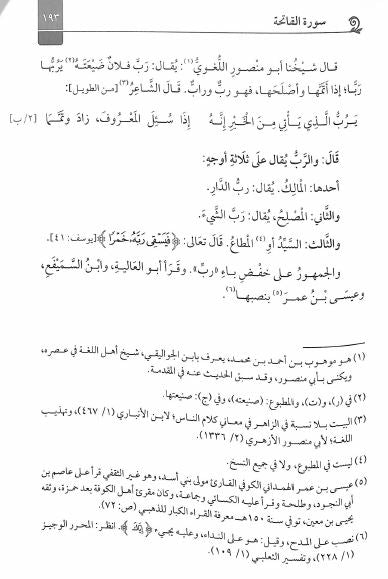 سورة الفاتحة
١٩٣
قال شيخُنا أبو منصورٍ اللُّغويُّ(١): يُقال: رَبَّ فلانٌ ضَيْعَتَهُ(٢) يَرُبُّها
رَبًّا؛ إذا أَتَمَّها وأصْلَحَها، فهو ربٌّ ورابٌّ. قال الشَّاعِرُ(٣) [من الطويل]:
يَرُبُّ الَّذِي يَأْتِي مِنَ الْخَيْرِ إِنَّهُ إِذَا سُئِلَ المَعْرُوفَ، زادَ وتَمَّمَا [٢/ب]
قَالَ: والرَّبُّ يُقال علَى ثَلَاثَةِ أوجهٍ:
أحدها: المَالِكُ. يُقال: ربُّ الدَّارِ.
والثَّاني: المُصْلِحُ، يُقال: رَبَّ الشَّيءَ.
والثَّالث: السَّيِّدُ أو(٤) المُطَاعُ. قَالَ تعالى: ﴿فَيَسْقِى رَبَّهُۥ خَمْرًا﴾ [يوسف: ٤١].
والجمهورُ على خَفْضِ باءِ «ربِّ». وقَرَأ أبو العالية، وابْنُ السَّمَيْفَعِ،
وعيسَى بْنُ عمرَ(٥) بنصبِها(٦).
(١) هو موهوب بن أحمد بن محمد، يعرف بابن الجواليقي، شيخ أهل اللغة في عصره،
ويكنى بأبي منصور، وقد سبق الحديث عنه في المقدمة.
(٢) في (ر)، و(ت)، والمطبوع: (صنيعته)، وفي (ج): صنيعتها.
(٣) البيت بلا نسبة في الزاهر في معاني كلام الناس؛ لابن الأنباري (١/ ٤٦٧)، وتهذيب
اللغة؛ لأبي منصور الأزهري (٢/ ١٣٣٦).
(٤) ليست في المطبوع، ولا في جميع النسخ.
(٥) عيسى بن عمر الهمداني الكوفي القارئ مولى بني أسد، وهو غير الثقفي قرأ على عاصم بن
أبي النجود، وطلحة وقرأ عليه الكسائي وجماعة، وكان مقرئ أهل الكوفة بعد حمزة، وثقه
يحيى بن معين، توفي سنة ١٥٠هـ معرفة القراء الكبار للذهبي (ص: ٧٢).
(٦) نصب على المدح، وقيل: هو على النداء، وعليه يجيء ﴿إِيَّاكَ﴾. انظر: المحرر الوجيز
(١/ ٢٢٨)، وتفسير الثعلبي (١/ ١٠٩).